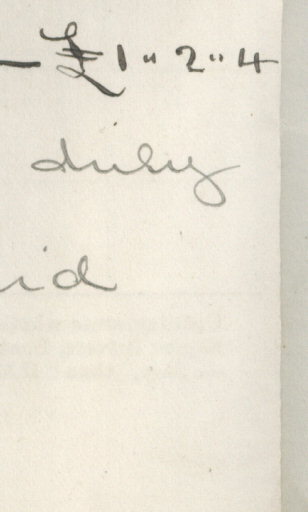 — £1"2"4
duly
id